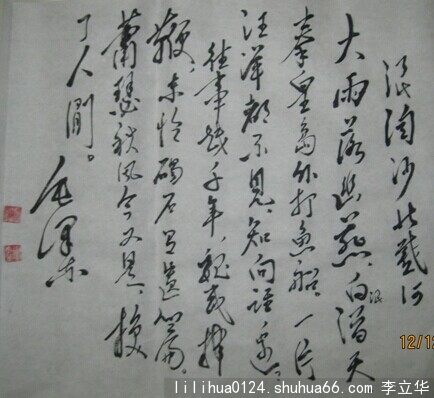 浪淘沙北戴河
大雨落幽燕。白浪滔天
秦皇島外打魚船。一片
汪洋都不見，知向誰邊。
往事越千年，魏武揮
鞭，東臨碣石有遺篇。
蕭瑟秋風今又是，換
了人间。
毛澤东
12/12
lilihua0124.shuhua66.com 李立华